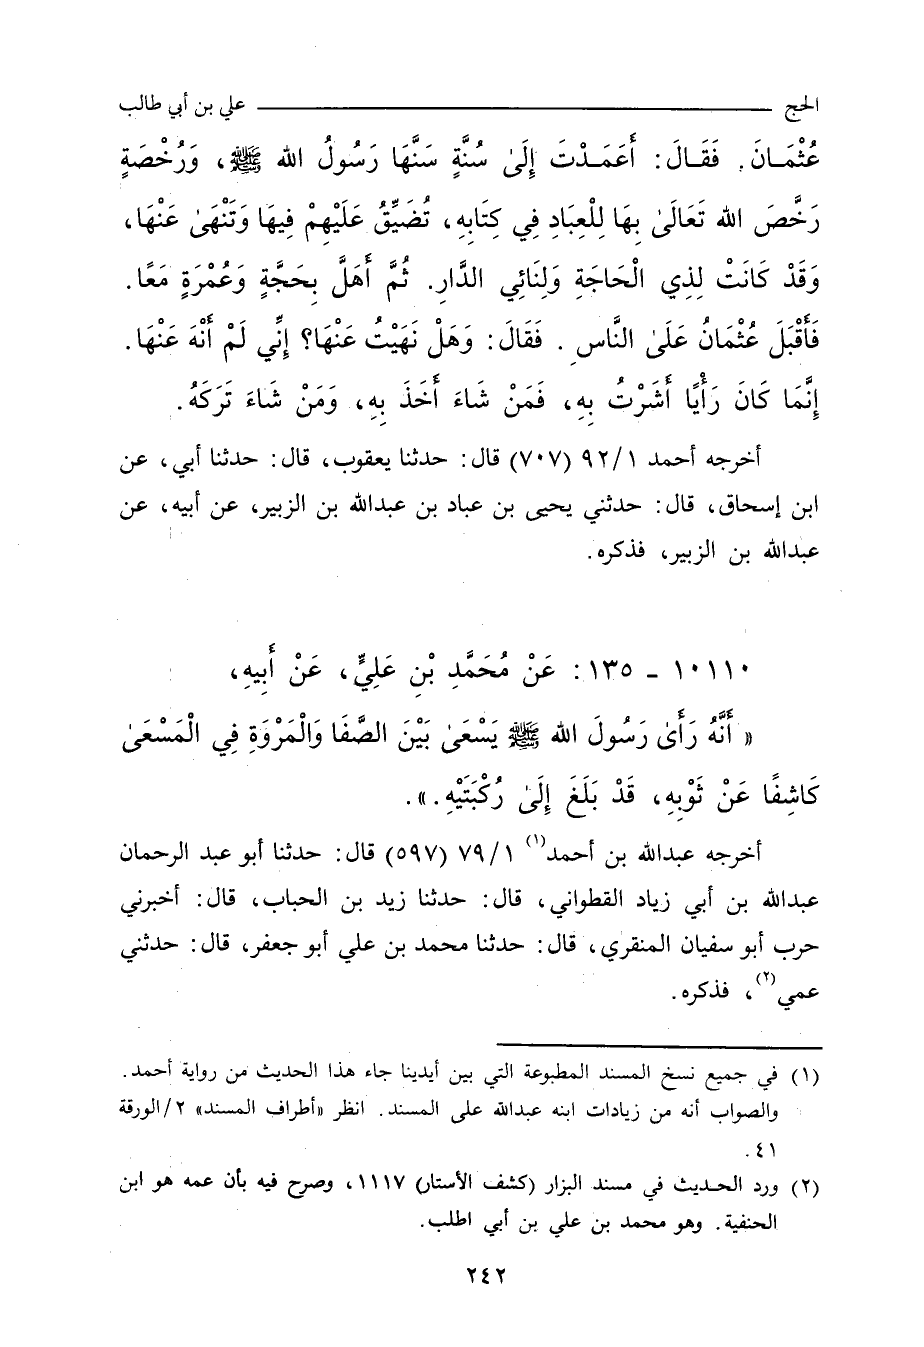 الحج علي بن أبي طالب
عُثْمَـانَ. فَقَـالَ: أَعَمَـدْتَ إِلَىٰ سُنَّةٍ سَنَّهَا رَسُولُ الله ﷺ، وَرُخْصَةٍ
رَخَّصَ الله تَعَالَىٰ بِهَا لِلْعِبَادِ فِي كِتَابِهِ، تُضَيِّقُ عَلَيْهِمْ فِيهَا وَتَنْهَىٰ عَنْهَا،
وَقَدْ كَانَتْ لِذِي الْحَاجَةِ وَلِنَائِي الدَّارِ. ثُمَّ أَهَلَّ بِحَجَّةٍ وَعُمْرَةٍ مَعًا.
فَأَقْبَلَ عُثْمَانُ عَلَىٰ النَّاسِ. فَقَالَ: وَهَلْ نَهَيْتُ عَنْهَا؟ إِنِّي لَمْ أَنْهَ عَنْهَا.
إِنَّمَا كَانَ رَأْيًا أَشَرْتُ بِهِ، فَمَنْ شَاءَ أَخَذَ بِهِ، وَمَنْ شَاءَ تَرَكَهُ.
أخرجه أحمد ٩٢/١ (٧٠٧) قال: حدثنا يعقوب، قال: حدثنا أبي، عن
ابن إسحاق، قال: حدثني يحيى بن عباد بن عبدالله بن الزبير، عن أبيه، عن
عبدالله بن الزبير، فذكره.
١٠١١٠ - ١٣٥: عَنْ مُحَمَّدِ بْنِ عَلِيٍّ، عَنْ أَبِيهِ،
« أَنَّهُ رَأَىٰ رَسُولَ الله ﷺ يَسْعَىٰ بَيْنَ الصَّفَا وَالْمَرْوَةِ فِي الْمَسْعَىٰ
كَاشِفًا عَنْ ثَوْبِهِ، قَدْ بَلَغَ إِلَىٰ رُكْبَتَيْهِ.».
أخرجه عبدالله بن أحمد(١) ٧٩/١ (٥٩٧) قال: حدثنا أبو عبد الرحمان
عبدالله بن أبي زياد القطواني، قال: حدثنا زيد بن الحباب، قال: أخبرني
حرب أبو سفيان المنقري، قال: حدثنا محمد بن علي أبو جعفر، قال: حدثني
عمي(٢)، فذكره.
(١) في جميع نسخ المسند المطبوعة التي بين أيدينا جاء هذا الحديث من رواية أحمد.
والصواب أنه من زيادات ابنه عبدالله على المسند. انظر «أطراف المسند» ٢/الورقة
٤١.
(٢) ورد الحـديث في مسند البزار (كشف الأستار) ١١١٧، وصرح فيه بأن عمه هو ابن
الحنفية. وهو محمد بن علي بن أبي اطلب.
٢٤٢